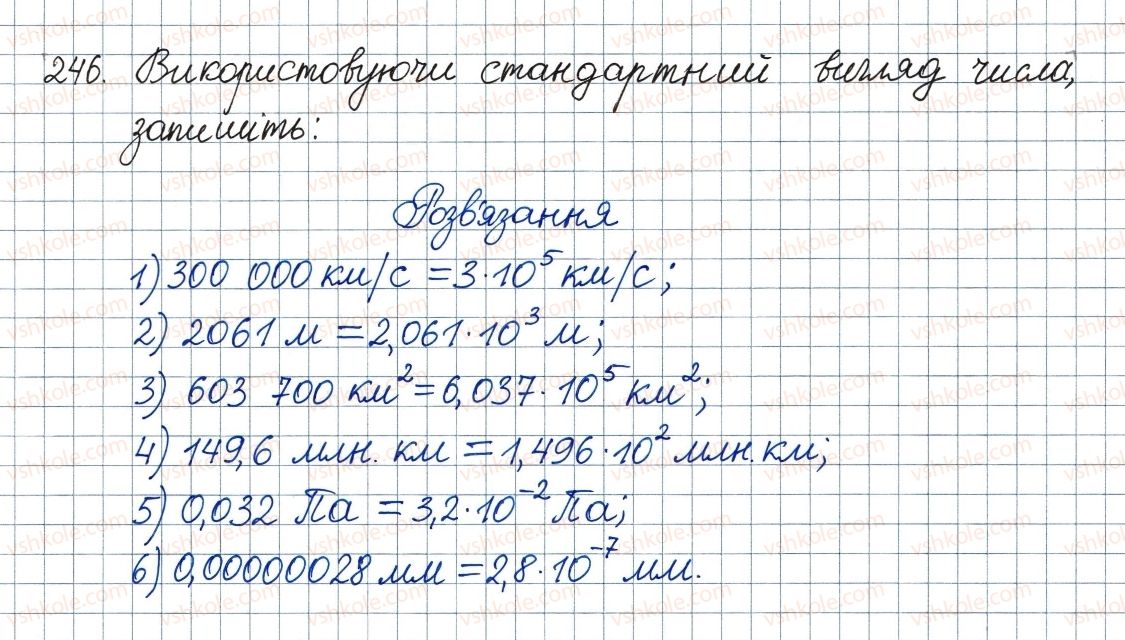 246. Використовуючи стандартний вигляд числа,
запишіть:
Розв'язання
1) 300 000 км/с = 3·10⁵ км/с;
2) 2061 м = 2,061·10³ м;
3) 603 700 км² = 6,037·10⁵ км²;
4) 149,6 млн. км = 1,496·10² млн. км;
5) 0,032 Па = 3,2·10⁻² Па;
6) 0,00000028 мм = 2,8·10⁻⁷ мм.